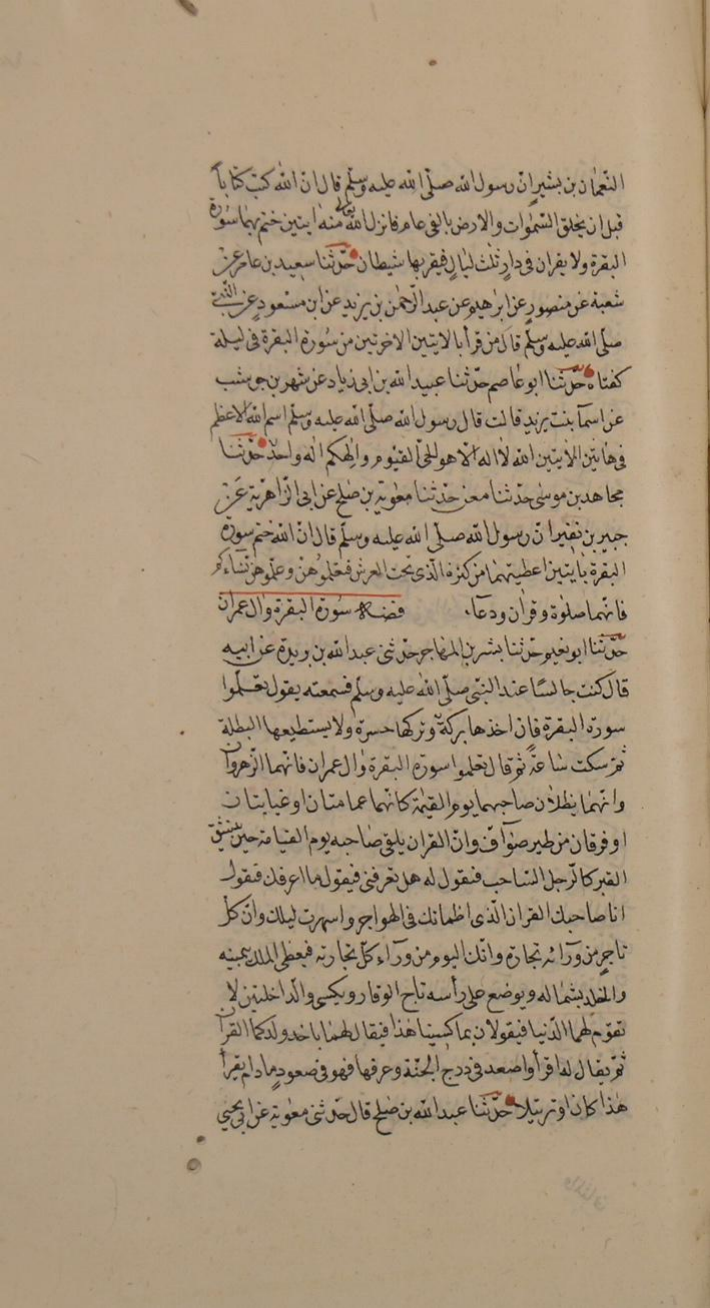 النعمان بن بشير ان رسول الله صلى الله عليه وسلم قال ان الله كتب كتابا
قبل ان يخلق السموات والارض بالفى عام فانزل الله تعالى منه ايتين ختم بهما سورة
البقرة ولا يقران فى دار ثلث ليال فيقربها شيطان حدثنا سعيد بن عامر عن
شعبة عن منصور عن ابرهيم عن عبد الرحمن بن يزيد عن ابن مسعود عن النبى
صلى الله عليه وسلم قال من قرأ بالايتين الاخرتين من سورة البقرة فى ليلة
كفتاه حدثنا ابو عاصم حدثنا عبيد الله بن ابى زياد عن شهر بن حوشب
عن اسمآ بنت يزيد قالت قال رسول الله صلى الله عليه وسلم اسم الله الاعظم
فى هاتين الايتين الله لا اله الا هو الحى القيوم والهكم اله واحد حدثنا
مجاهد بن موسى حدثنا معن حدثنا معوية بن صلح عن ابى الزاهرية عن
جبير بن نفير ان رسول الله صلى الله عليه وسلم قال ان الله ختم سورة
البقرة بايتين اعطيتهما من كنزه الذى تحت العرش فتعلموهن وعلموهن نساءكم
فانهما صلوة وقران ودعآء فضل سورة البقرة وال عمران
حدثنا ابو نعيم حدثنا بشر بن المهاجر حدثنى عبد الله بن بريدة عن ابيه
قال كنت جالسا عند النبى صلى الله عليه وسلم فسمعته يقول تعلموا
سورة البقرة فان اخذها بركة وتركها حسرة ولا يستطيعها البطلة
ثم سكت ساعة ثم قال تعلموا سورة البقرة وال عمران فانهما الزهروان
وانهما يظلان صاحبهما يوم القيمة كانهما غمامتان او غيايتان
او فرقان من طير صوآف وان القران يلقى صاحبه يوم القيامة حين ينشق
القبر كالرجل الشاحب فيقول له هل تعرفنى فيقول ما اعرفك فيقول
انا صاحبك القران الذى اظمأتك فى الهواجر واسهرت ليلك وان كل
تاجر من ورآئه تجارته وانك اليوم من ورآء كل تجارته فيعطى الملك بيمينه
والخلد بشماله ويوضع على رأسه تاج الوقار ويكسى والداه حلتين لا
تقوم لهما الدنيا فيقولان بما كسينا هذا فيقال لهما باخذ ولدكما القرآ
ثم يقال له اقرأ واصعد فى درج الجنة وغرفها فهو فى صعود ما دام يقرأ
هذا كان او ترتيلا حدثنا عبد الله بن صلح قال حدثنى معوية عن ابى يحيى